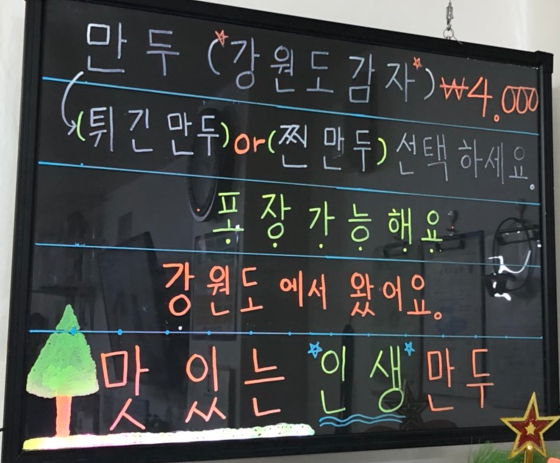 만두 (강원도감자) ₩4.000
(튀긴만두) or (찐만두) 선택하세요.
포장가능해요
강원도에서 왔어요.
맛있는 인생만두